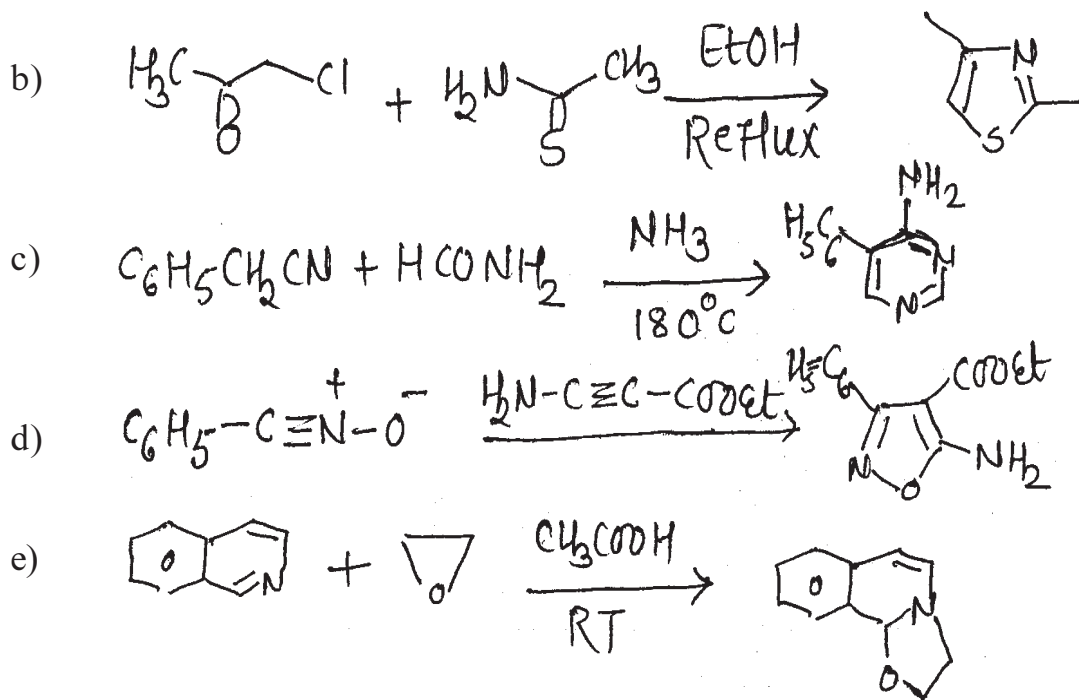 b) H3C O Cl + H2N S CH3 EtOH Reflux N S
c) C6H5CH2CN + HCONH2 NH3 180°C H5C6 NH2 N N
d) C6H5-C≡N+-O- H2N-C≡C-COOEt H5C6 COOEt N O NH2
e) N + O CH3COOH RT N O